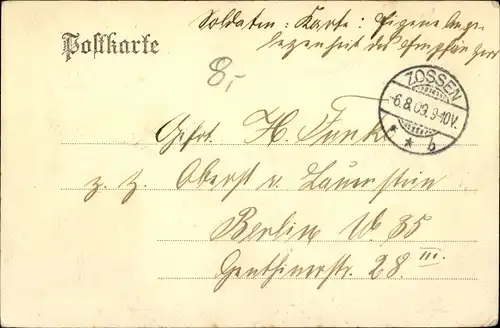 Soldaten: Karte: Eigene Ange-
legenheit des Empfängers
Postkarte
8,-
ZOSSEN
-6.8.09.9-10V.
* * b
Gefrt. H. Funk
z. Z. Oberst v. Lauenstein
Berlin W. 35
Genthinerstr. 28 III.